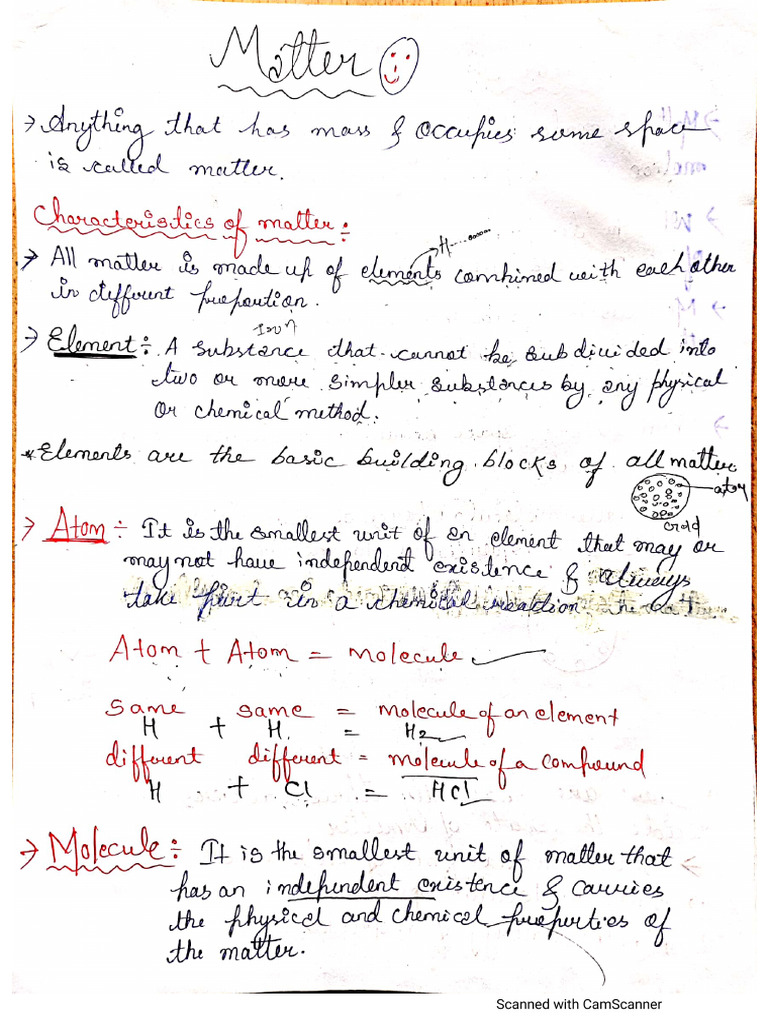 Matter
→ Anything that has mass & occupies some space
is called matter.
Characteristics of matter :-
H.....
→ All matter is made up of elements combined with each other
in different proportion.
Iron
→ Element ÷ A substance that cannot be subdivided into
two or more simpler substances by any physical
or chemical method.
* Elements are the basic building blocks of all matter
atom
gold
→ Atom ÷ It is the smallest unit of an element that may or
may not have independent existence & always
take part in a chemical reaction
Atom + Atom = Molecule
Same same = molecule of an element
H + H = H2
different different = molecule of a compound
H + Cl = HCl
→ Molecule ÷ It is the smallest unit of matter that
has an independent existence & carries
the physical and chemical properties of
the matter.
Scanned with CamScanner